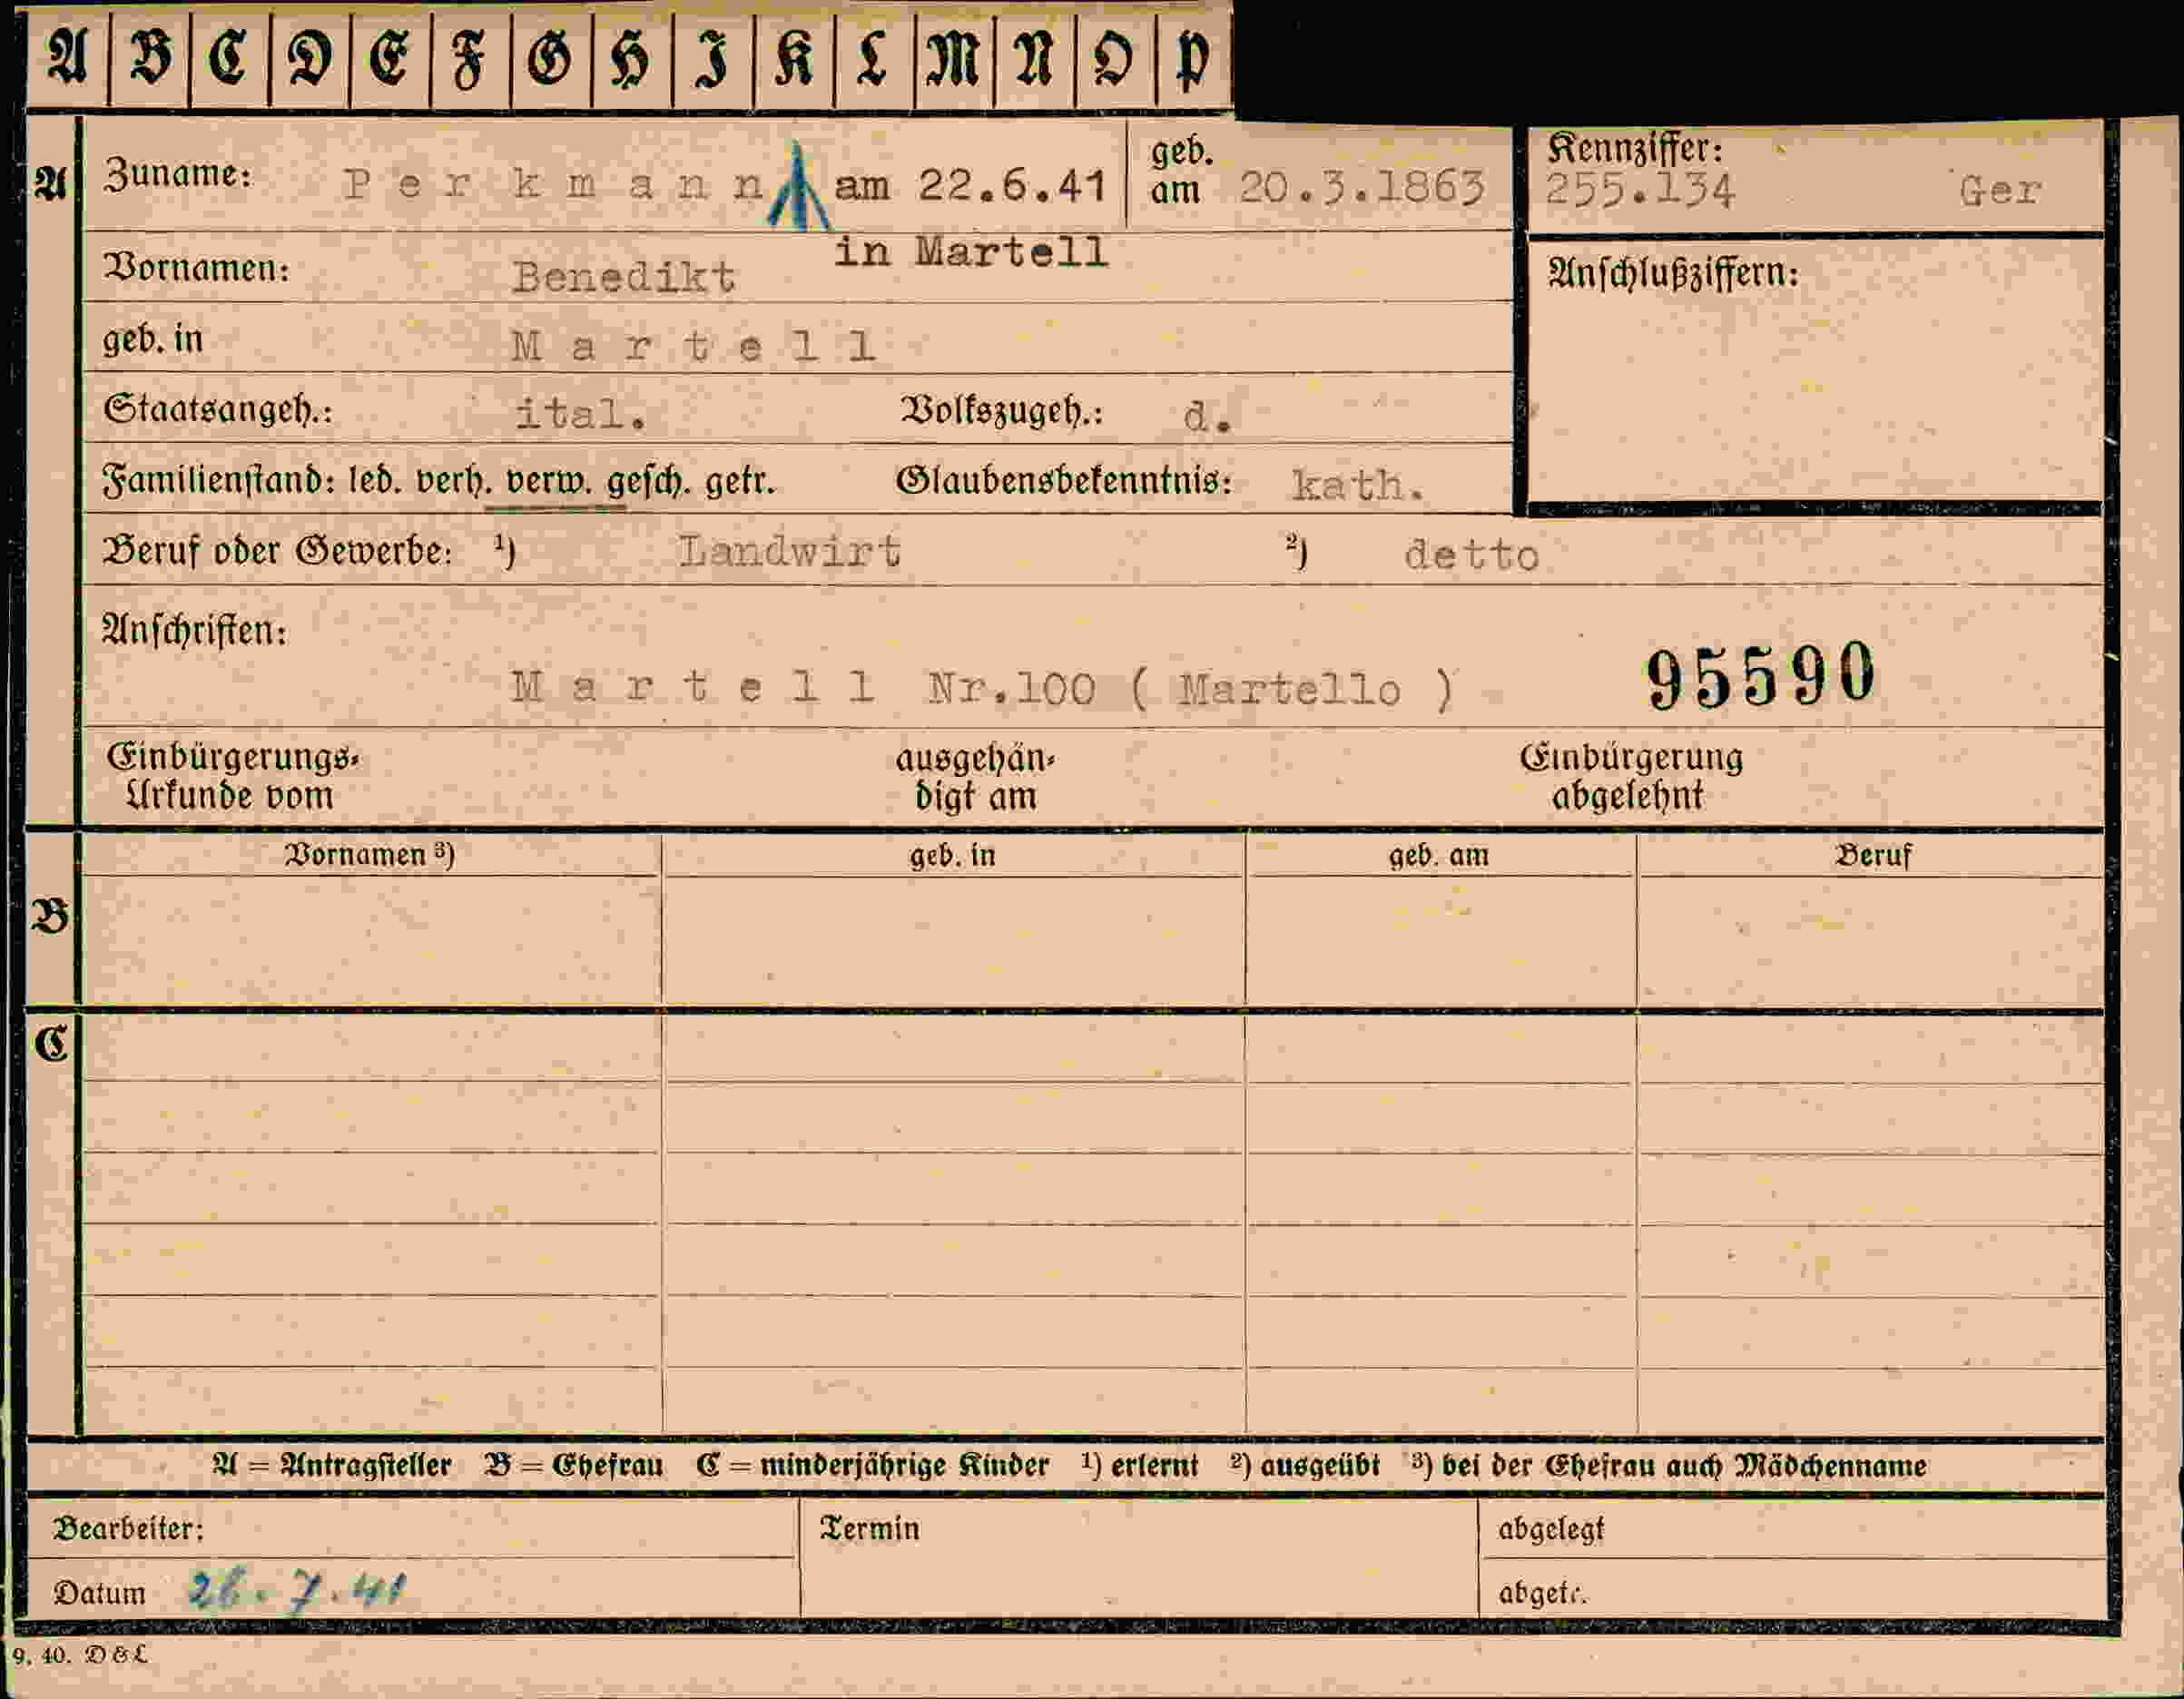 A B C D E F G H I K L M N O P
A Zuname: Perkmann am 22.6.41 geb. am 20.3.1863 Kennziffer: 255.134 Ger
in Martell
Vornamen: Benedikt Anschlußziffern:
geb. in Martell
Staatsangeh.: ital. Volkszugeh.: d.
Familienstand: led. verh. verw. gesch. getr. Glaubensbekenntnis: kath.
Beruf oder Gewerbe: ¹) Landwirt ²) detto
Anschriften:
Martell Nr.100 ( Martello ) 95590
Einbürgerungs- ausgehän- Einbürgerung
Urkunde vom digt am abgelehnt
Vornamen ³) geb. in geb. am Beruf
B
C
A = Antragsteller B = Ehefrau C = minderjährige Kinder ¹) erlernt ²) ausgeübt ³) bei der Ehefrau auch Mädchenname
Bearbeiter: Termin abgelegt
Datum 26.7.41 abgetr.
9. 40. D & L